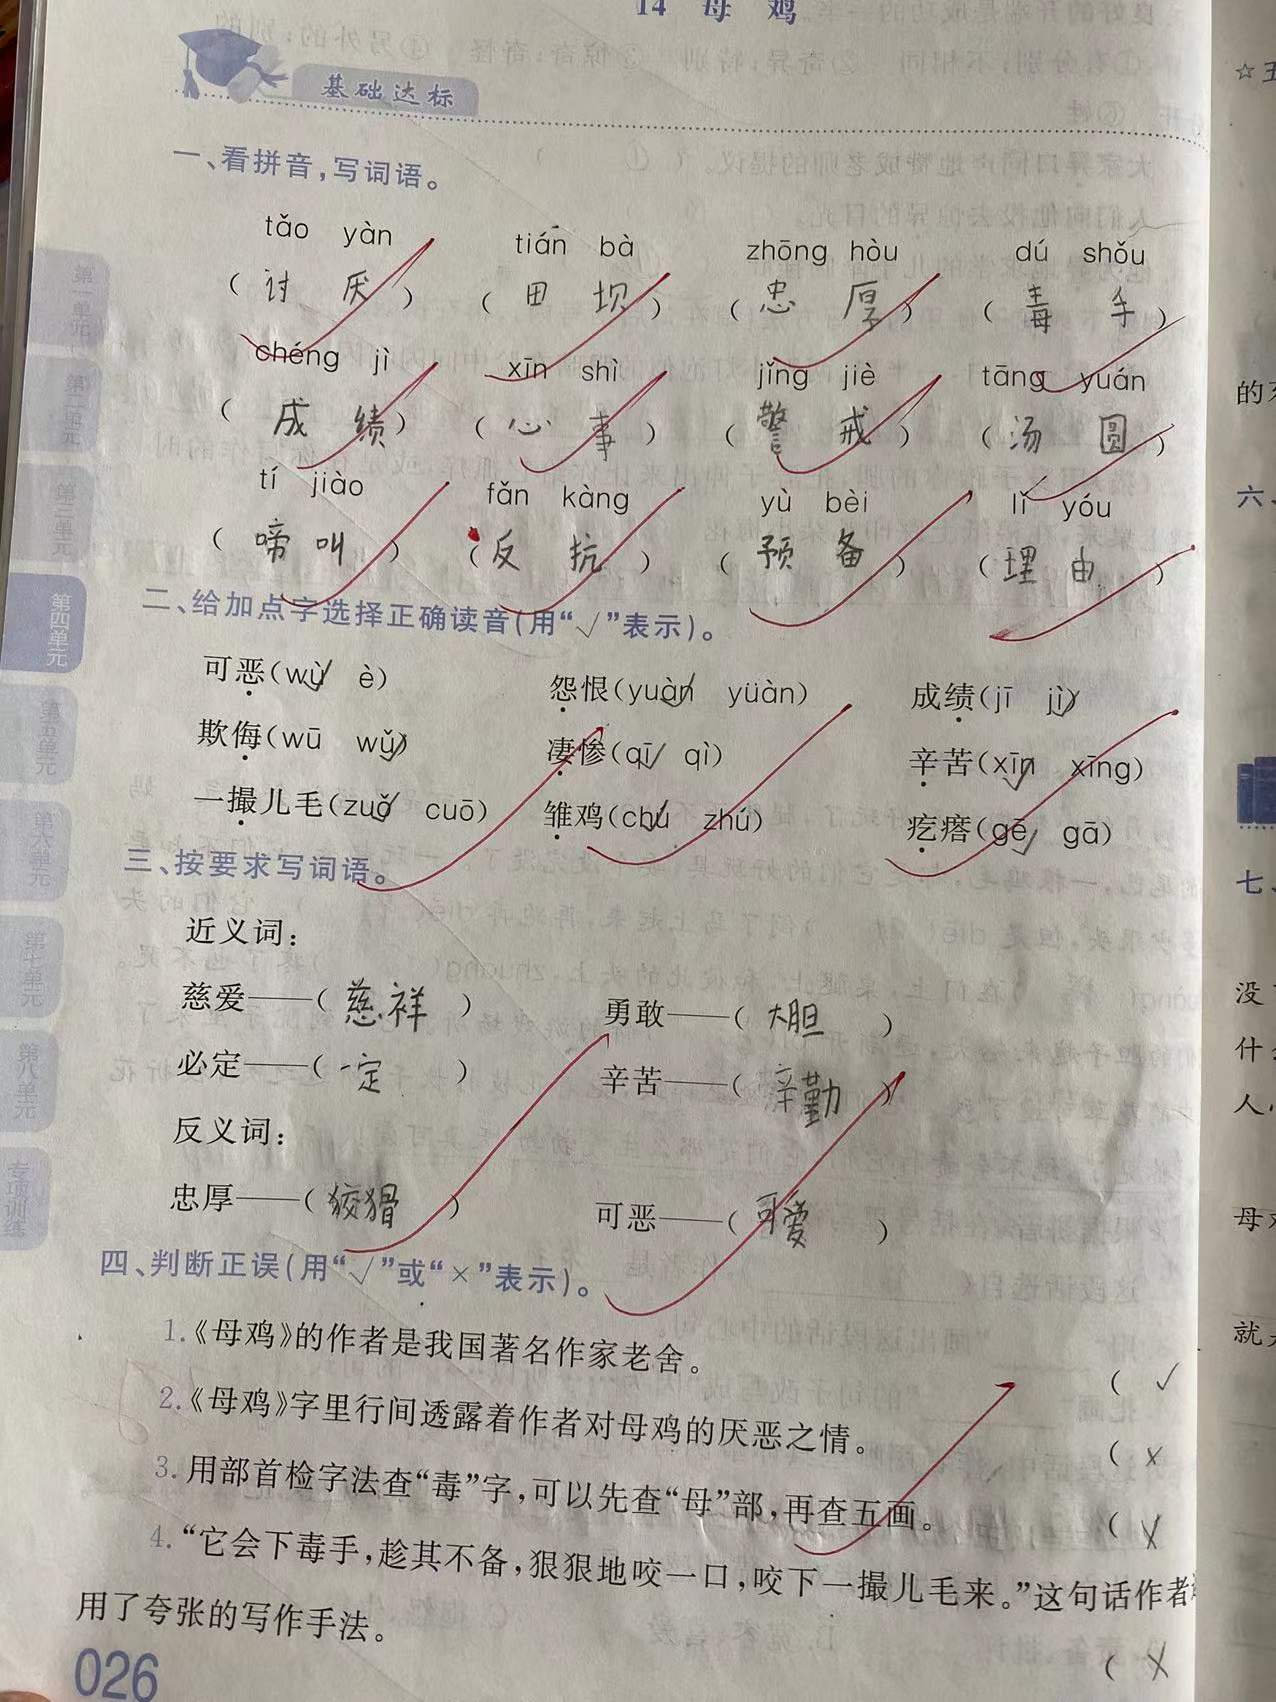 14 母 鸡
基础达标
一、看拼音,写词语。
tǎo yàn tián bà zhōng hòu dú shǒu
(讨 厌) (田 坝) (忠 厚) (毒 手)
chéng jì xīn shì jǐng jiè tāng yuán
(成 绩) (心 事) (警 戒) (汤 圆)
tí jiào fǎn kàng yù bèi lǐ yóu
(啼 叫) (反 抗) (预 备) (理 由)
二、给加点字选择正确读音(用“√”表示)。
可恶(wù√ è) 怨恨(yuàn√ yüàn) 成绩(jī jì√)
欺侮(wū wǔ√) 凄惨(qī√ qì) 辛苦(xīn√ xīng)
一撮儿毛(zuǒ√ cuō) 雏鸡(chú√ zhú) 疙瘩(gē√ gā)
三、按要求写词语。
近义词:
慈爱——(慈祥) 勇敢——(大胆)
必定——(一定) 辛苦——(辛勤)
反义词:
忠厚——(狡猾) 可恶——(可爱)
四、判断正误(用“√”或“×”表示)。
1.《母鸡》的作者是我国著名作家老舍。 (√
2.《母鸡》字里行间透露着作者对母鸡的厌恶之情。 (×
3.用部首检字法查“毒”字,可以先查“母”部,再查五画。 (×
4.“它会下毒手,趁其不备,狠狠地咬一口,咬下一撮儿毛来。”这句话作者
用了夸张的写作手法。 (×
026
第一单元
第二单元
第三单元
第四单元
第五单元
第六单元
第七单元
第八单元
专项训练
☆五
的
六、
七、
没
什
人
母
就